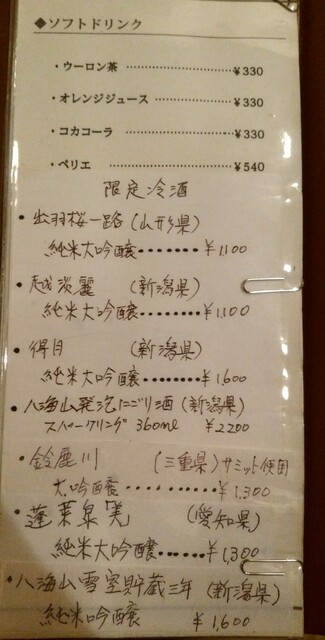 ◆ソフトドリンク
・ウーロン茶 ……………………… ¥330
・オレンジジュース ……………… ¥330
・コカコーラ ……………………… ¥330
・ペリエ …………………………… ¥540
限定冷酒
・出羽桜一路(山形県)
純米大吟醸・・・・・・・¥1,100
・越淡麗 (新潟県)
純米大吟醸・・・・・・・¥1,100
・得月 (新潟県)
純米大吟醸・・・・・・・¥1,600
・八海山発泡にごり酒(新潟県)
スパークリング 360ml ¥2200
・鈴鹿川 (三重県)サミット使用
大吟醸・・・・・・・・・¥1,300
・蓬莱泉「美」 (愛知県)
純米大吟醸・・・・・・¥1,300
・八海山雪室貯蔵三年 (新潟県)
純米吟醸 ¥1,600